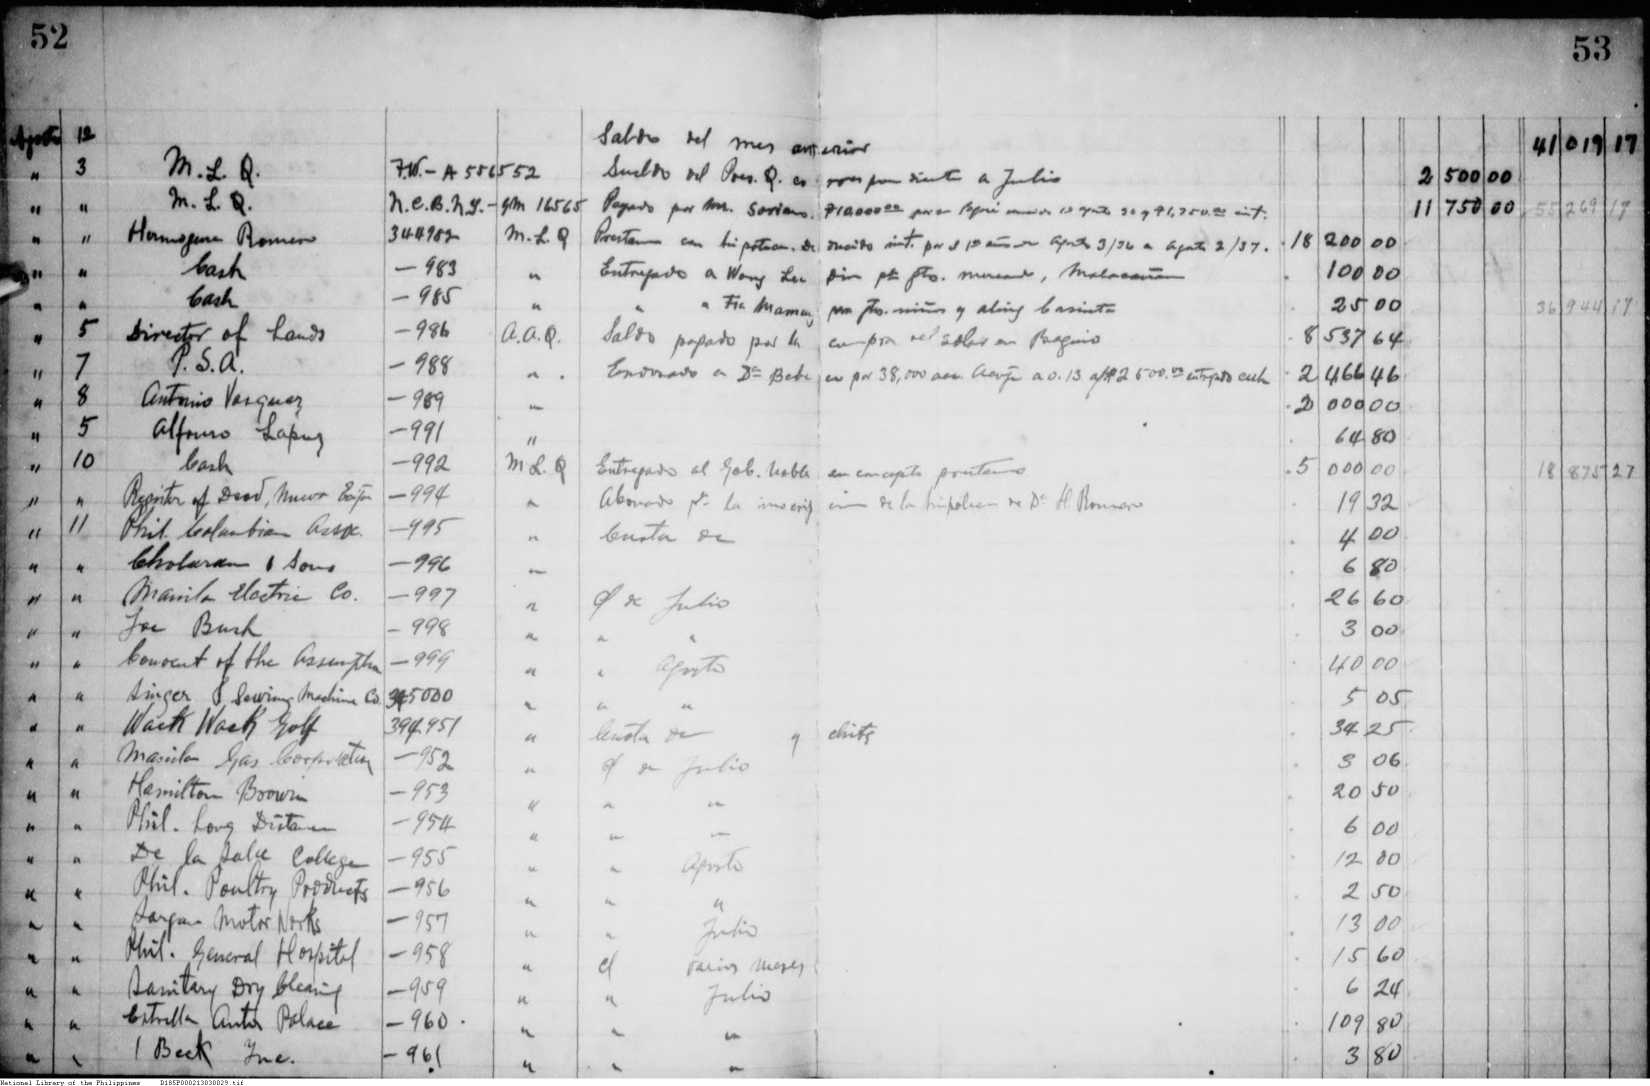 52 53
Agosto 12 Saldo del mes anterior 41 019 17
" 3 M. L. Q. F.W.-A 556552 Sueldo del Pres. Q. correspondiente a Julio 2 500 00
" " M. L. Q. N.C.B.N.Y.- 16565 Pagado por Mr. Soriano 11 750 00 55 269 17
" " Hermogena Romero 344982 M. L. Q Prestamo con hipoteca. Deducido int. por el 1er año de Agosto 3/36 a Agosto 2/37. 18 200 00
" " Cash — 983 " Entregado a Wong 100 00
" " Cash — 985 " " " 25 00 36 944 17
" 5 Director of Lands — 986 A.A.Q. Saldo pagado por la compra del solar en Baguio 8 537 64
" 7 P.S.A. — 988 " . 2 466 46
" 8 Antonio Vasquez — 989 " 2 000 00
" 5 Alfonso — 991 " 64 80
" 10 Cash — 992 M. L. Q Entregado al Gob. en concepto prestamo 5 000 00 18 875 27
" " — 994 " Abonado la inscripcion de la hipoteca de Da H. Romero 19 32
" 11 Phil. Columbian Asso. — 995 " Cuota de 4 00
" " & Sons — 996 " 6 80
" " Manila Electric Co. — 997 " de Julio 26 60
" " Joe Bush — 998 " " " 3 00
" " Convent of the Assumption — 999 " " Agosto 40 00
" " Singer Sewing Machine Co. 345000 " " " 5 05
" " Wack Wack Golf 394951 " Cuota de y chits 34 25
" " Manila Gas Corporation — 952 " de Julio 3 06
" " Hamilton Brown — 953 " " " 20 50
" " Phil. Long Distance — 954 " " " 6 00
" " De la Salle College — 955 " " Agosto 12 00
" " Phil. Poultry Products — 956 " " " 2 50
" " Motor Works — 957 " " Julio 13 00
" " Phil. General Hospital — 958 " varios meses 15 60
" " Sanitary Dry Cleaning — 959 " " Julio 6 24
" " Estrella Auto Palace — 960 " " " 109 80
" " I Beck Inc. — 961 " " " 3 80
National Library of the Philippines D185P000213030029.tif